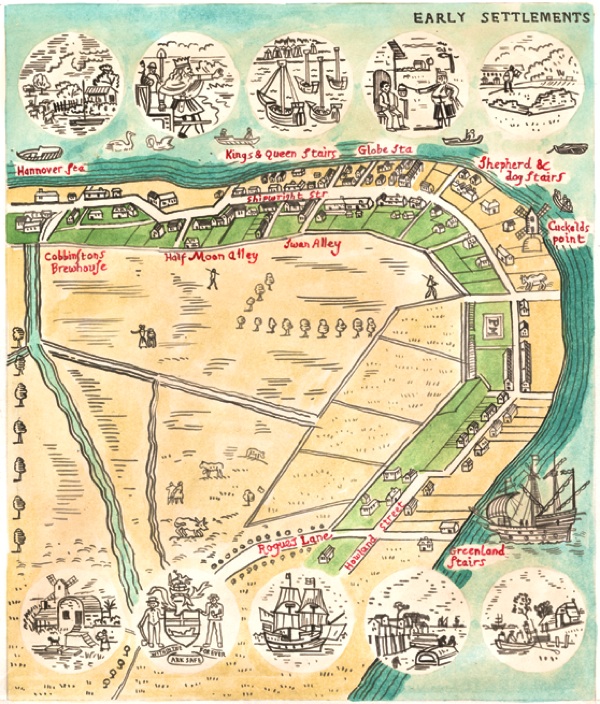 EARLY SETTLEMENTS
Hannover sea
Kings & Queen Stairs
Globe Sta
Shepherd &
dog Stairs
Shipwright Str
Cuckolds
point
Cobbinstons
Brewhouse
Half Moon Alley
Swan Alley
PM
Rogues Lane
Howland Street
Greenland
Stairs
FOR EVER
ARK SAFE